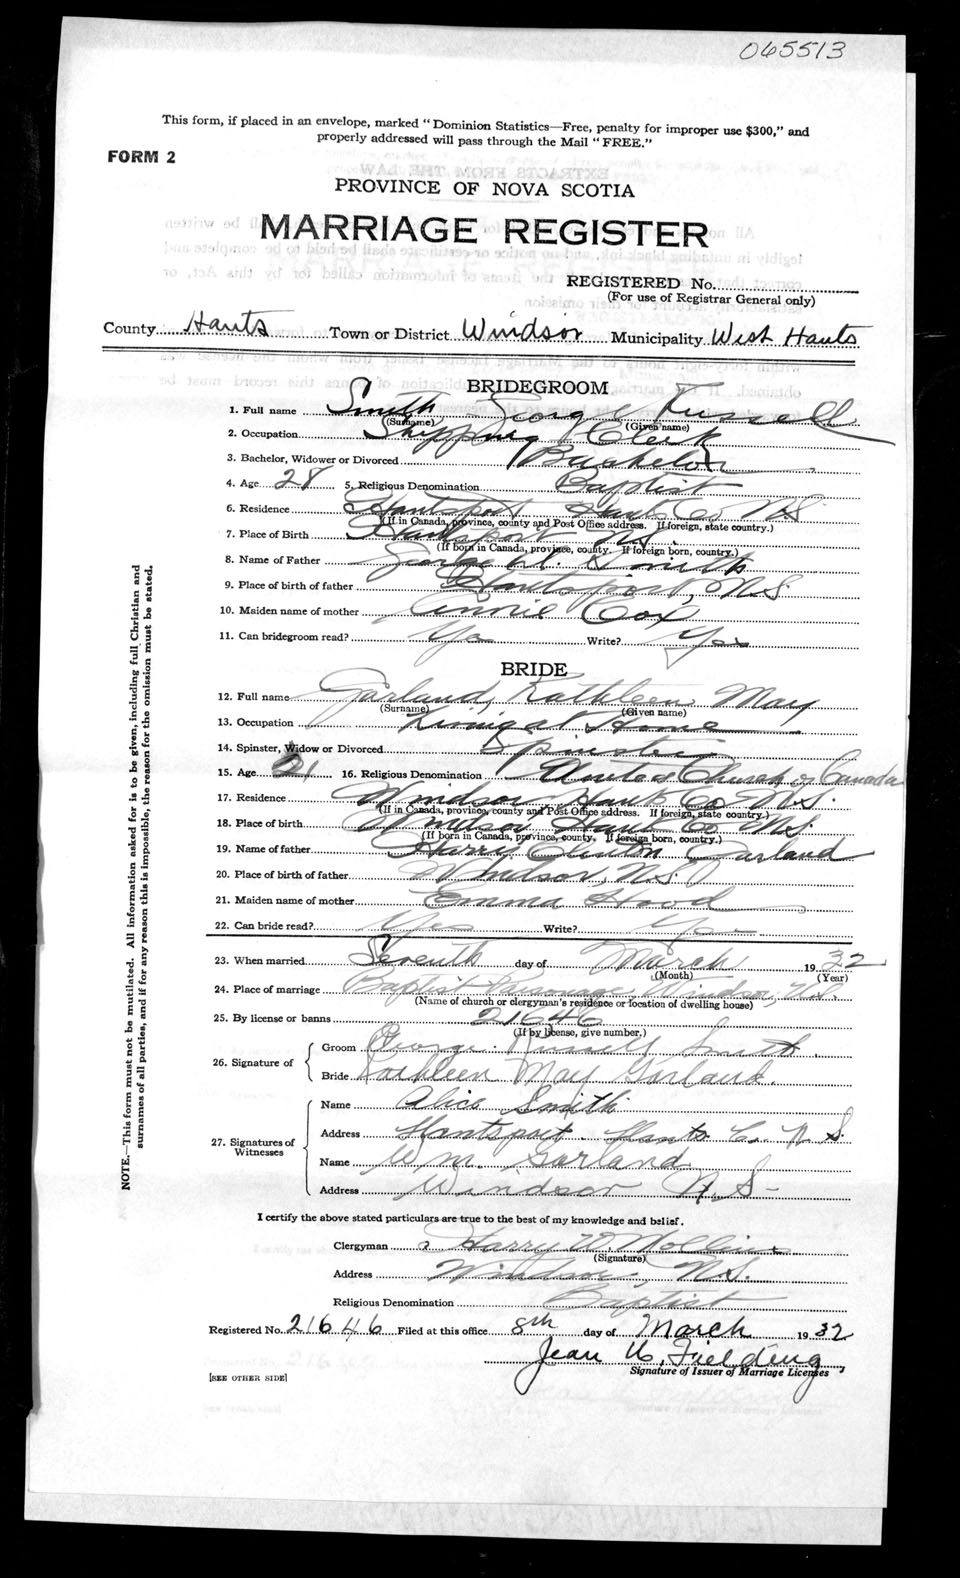 065513
This form, if placed in an envelope, marked "Dominion Statistics—Free, penalty for improper use $300," and
properly addressed will pass through the Mail "FREE."
FORM 2
PROVINCE OF NOVA SCOTIA
MARRIAGE REGISTER
REGISTERED No.
(For use of Registrar General only)
County Hants Town or District Windsor Municipality West Hants
BRIDEGROOM
1. Full name Smith George Russell
(Surname) (Given name)
2. Occupation Shipping Clerk
3. Bachelor, Widower or Divorced Bachelor
4. Age 28 5. Religious Denomination Baptist
6. Residence Hantsport Hants Co N.S.
(If in Canada, province, county and Post Office address. If foreign, state country.)
7. Place of Birth Hantsport N.S.
(If born in Canada, province, county. If foreign born, country.)
8. Name of Father George W. Smith
9. Place of birth of father Hantsport, N.S.
10. Maiden name of mother Annie Cox
11. Can bridegroom read? Yes Write? Yes
BRIDE
12. Full name Garland, Kathleen May
(Surname) (Given name)
13. Occupation Living at Home
14. Spinster, Widow or Divorced Spinster
15. Age 21 16. Religious Denomination United Church of Canada
17. Residence Windsor Hants Co N.S.
(If in Canada, province, county and Post Office address. If foreign, state country.)
18. Place of birth Windsor Hants Co N.S.
(If born in Canada, province, county. If foreign born, country.)
19. Name of father Harry Clinton Garland
20. Place of birth of father Windsor, N.S.
21. Maiden name of mother Emma Hood
22. Can bride read? Yes Write? Yes
23. When married Seventh day of March 1932
(Month) (Year)
24. Place of marriage Baptist Parsonage, Windsor, N.S.
(Name of church or clergyman's residence or location of dwelling house)
25. By license or banns 21646
(If by license, give number.)
26. Signature of Groom George Russell Smith
Bride Kathleen May Garland.
27. Signatures of Witnesses
Name Alice Smith
Address Hantsport Hants Co. N.S.
Name Wm. Garland
Address Windsor N.S.
I certify the above stated particulars are true to the best of my knowledge and belief.
Clergyman Harry
(Signature)
Address Windsor, N.S.
Religious Denomination Baptist
Registered No. 21646 Filed at this office 8th day of March 1932
Jean W. Fielding
Signature of Issuer of Marriage Licenses
[SEE OTHER SIDE]
NOTE.—This form must not be mutilated. All information asked for is to be given, including full Christian and
surnames of all parties, and if for any reason this is impossible, the reason for the omission must be stated.